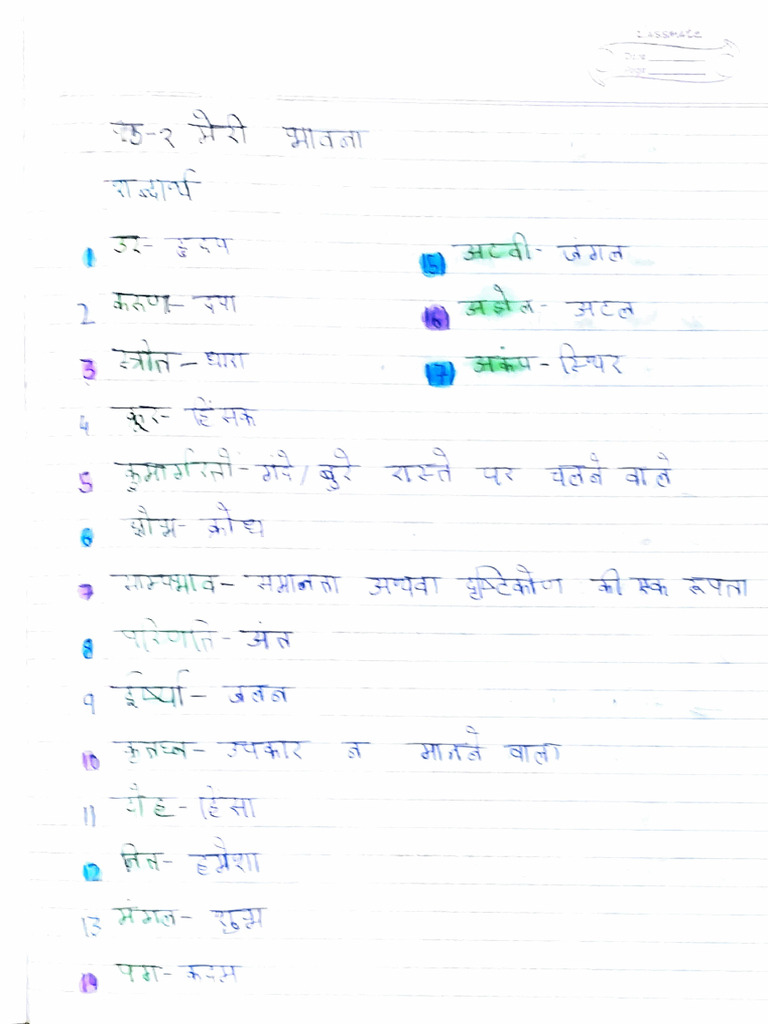 CLASSMATE
Date
Page
पाठ-२ मेरी भावना
शब्दार्थ
1 उर- हृदय
2 करुणा- दया
3 स्त्रोत- धारा
4 क्रूर- हिंसक
5 कुमार्गरतों- गंदे/बुरे रास्ते पर चलने वाले
6 क्षोभ- क्रोध
7 साम्यभाव- समानता अथवा दृष्टिकोण की एक रूपता
8 परिणति- अंत
9 ईर्ष्या- जलन
10 कृतघ्न- उपकार न मानने वाला
11 हिंसा
12 नित- हमेशा
13 मंगल- शुभ
14 पग- कदम
15 अटवी- जंगल
16 अडोल- अटल
17 अकंप- स्थिर